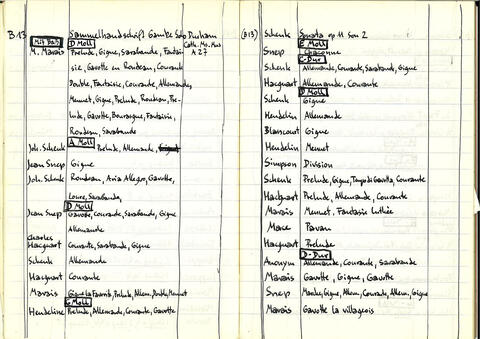 B 13 Sammelhandschrift Gambe Solo Durham
Mit Baß D Moll Cath. Mo. Mus
M. Marais Prelude, Gigue, Sarabande, Fantai- A 27
sie, Gavotte en Rondeau, Courante
Double, Fantaisie, Courante, Allemande,
Menuet, Gigue, Prelude, Rondeau, Pre-
lude, Gavotte, Bourasque, Fantaisie,
Rondeau, Sarabande
A Moll
Joh. Schenk Prelude, Allemande,
Jean Snep Gigue
Joh. Schenk Rondeau, Aria Allegro, Gavotte,
Loure, Sarabande,
D Moll
Jean Snep Gavotte, Courante, Sarabande, Gigue
Allemande
Charles
Hacquart Courante, Sarabande, Gigue
Schenk Allemande
Hacquart Courante
Marais Gigue la Favorite, Prelude, Allem., Double, Menuet
G Moll
Hendeline Prelude, Allemande, Courante, Gavotte
(B13) Schenk Sonata op 11 Son 2
E Moll
Snep Chaconne
C-Dur
Schenk Allemande, Courante, Sarabande, Gigue
Hacquart Allemande, Courante
D Moll
Schenk Gigue
Hendelin Allemande
Blancourt Gigue
Hendelin Menuet
Simpson Division
Schenk Prelude, Gigue, Tempo di Gavotta, Courante
Hacquart Prelude, Allemande, Courante
Marais Menuet, Fantasie luthée
Mace Pavan
Hacquart Prelude
D-Dur
Anonym Allemande, Courante, Sarabande
Marais Gavotte, Gigue, Gavotte
Snep Gigue, Allem, Courante, Allem, Gigue
Marais Gavotte la villageois